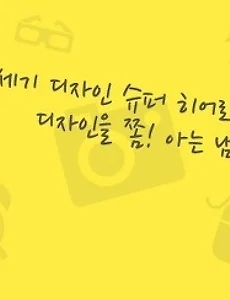 세기 디자인 슈퍼 히어로
디자인을 쫌! 아는 남